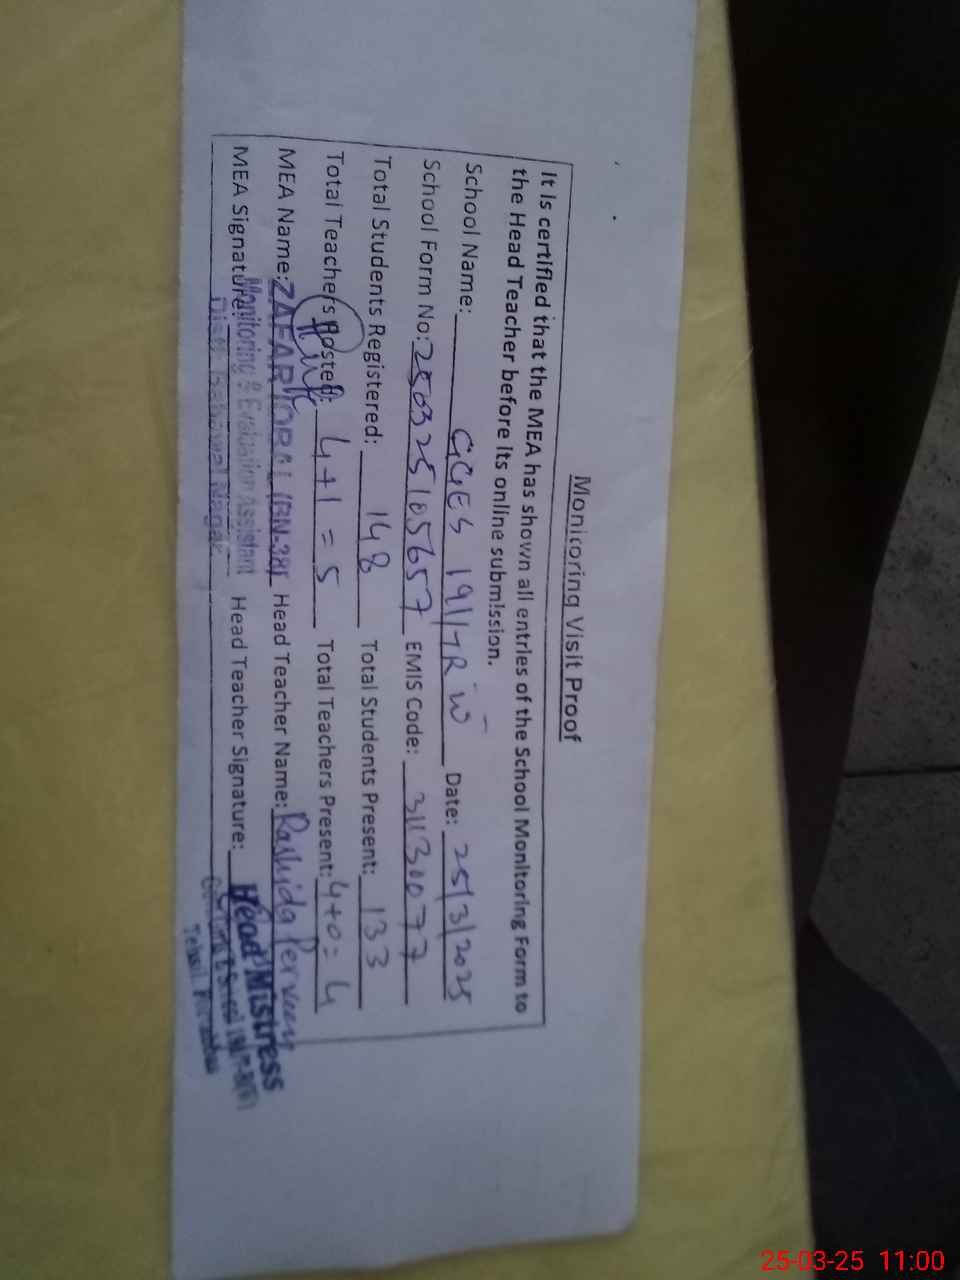 Monitoring Visit Proof
It is certified that the MEA has shown all entries of the School Monitoring Form to
the Head Teacher before its online submission.
School Name: GGES 191/7R W Date: 25/3/2025
School Form No: 250325105657 EMIS Code: 31130077
Total Students Registered: 148 Total Students Present: 133
Total Teachers Posted: 4+1=5 Total Teachers Present: 4+0=4
MEA Name: ZAFAR IQBAL (BN-38) Head Teacher Name: Rashida Perveen
MEA Signature: Head Teacher Signature:
Monitoring & Evaluation Assistant
Distt. Bahawal Nagar
Head Mistress
Tehsil
25-03-25 11:00